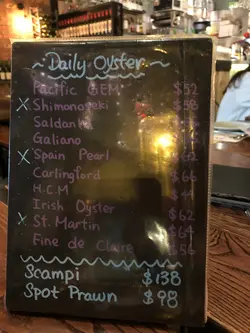 Daily Oyster
Pacific GEM $52
X Shimonoseki $58
Saldanha
Galiano
X Spain Pearl $62
Carlingford $66
H.C.M $44
Irish Oyster
X St. Martin $62
Fine de Claire $56
Scampi $138
Spot Prawn $98